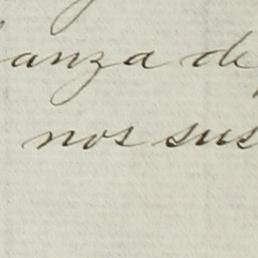 anza de
nos sus